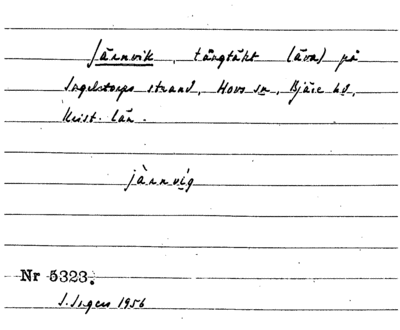 Jännvik, tångtäkt (äva) på
Ingelstorps strand, Hovs sn, Bjäre hd,
Krist. län.
jànnvig
Nr 5323.
S. Ingers 1956